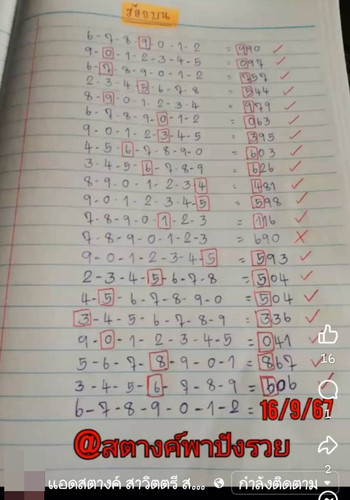 ร้อยบน
6-7-8-9-0-1-2 = 990 ✓
9-0-1-2-3-4-5 = 097 ✓
6-7-8-9-0-1-2 = 757 ✓
2-3-4-5-6-7-8 = 544 ✓
8-9-0-1-2-3-4 = 979 ✓
6-7-8-9-0-1-2 = 063 ✓
9-0-1-2-3-4-5 = 395 ✓
4-5-6-7-8-9-0 = 603 ✓
3-4-5-6-7-8-9 = 626 ✓
8-9-0-1-2-3-4 = 481 ✓
9-0-1-2-3-4-5 = 598 ✓
7-8-9-0-1-2-3 = 116 ✓
7-8-9-0-1-2-3 = 690 ✗
9-0-1-2-3-4-5 = 593 ✓
2-3-4-5-6-7-8 = 504 ✓
4-5-6-7-8-9-0 = 504 ✓
3-4-5-6-7-8-9 = 336 ✓
9-0-1-2-3-4-5 = 041 ✓
5-6-7-8-9-0-1 = 867 ✓
3-4-5-6-7-8-9 = 606 ✓
6-7-8-9-0-1-2 = 16/9/67
@สตางค์พาปังรวย
16
1
2
แอดสตางค์ สาวิตตรี ส... กำลังติดตาม